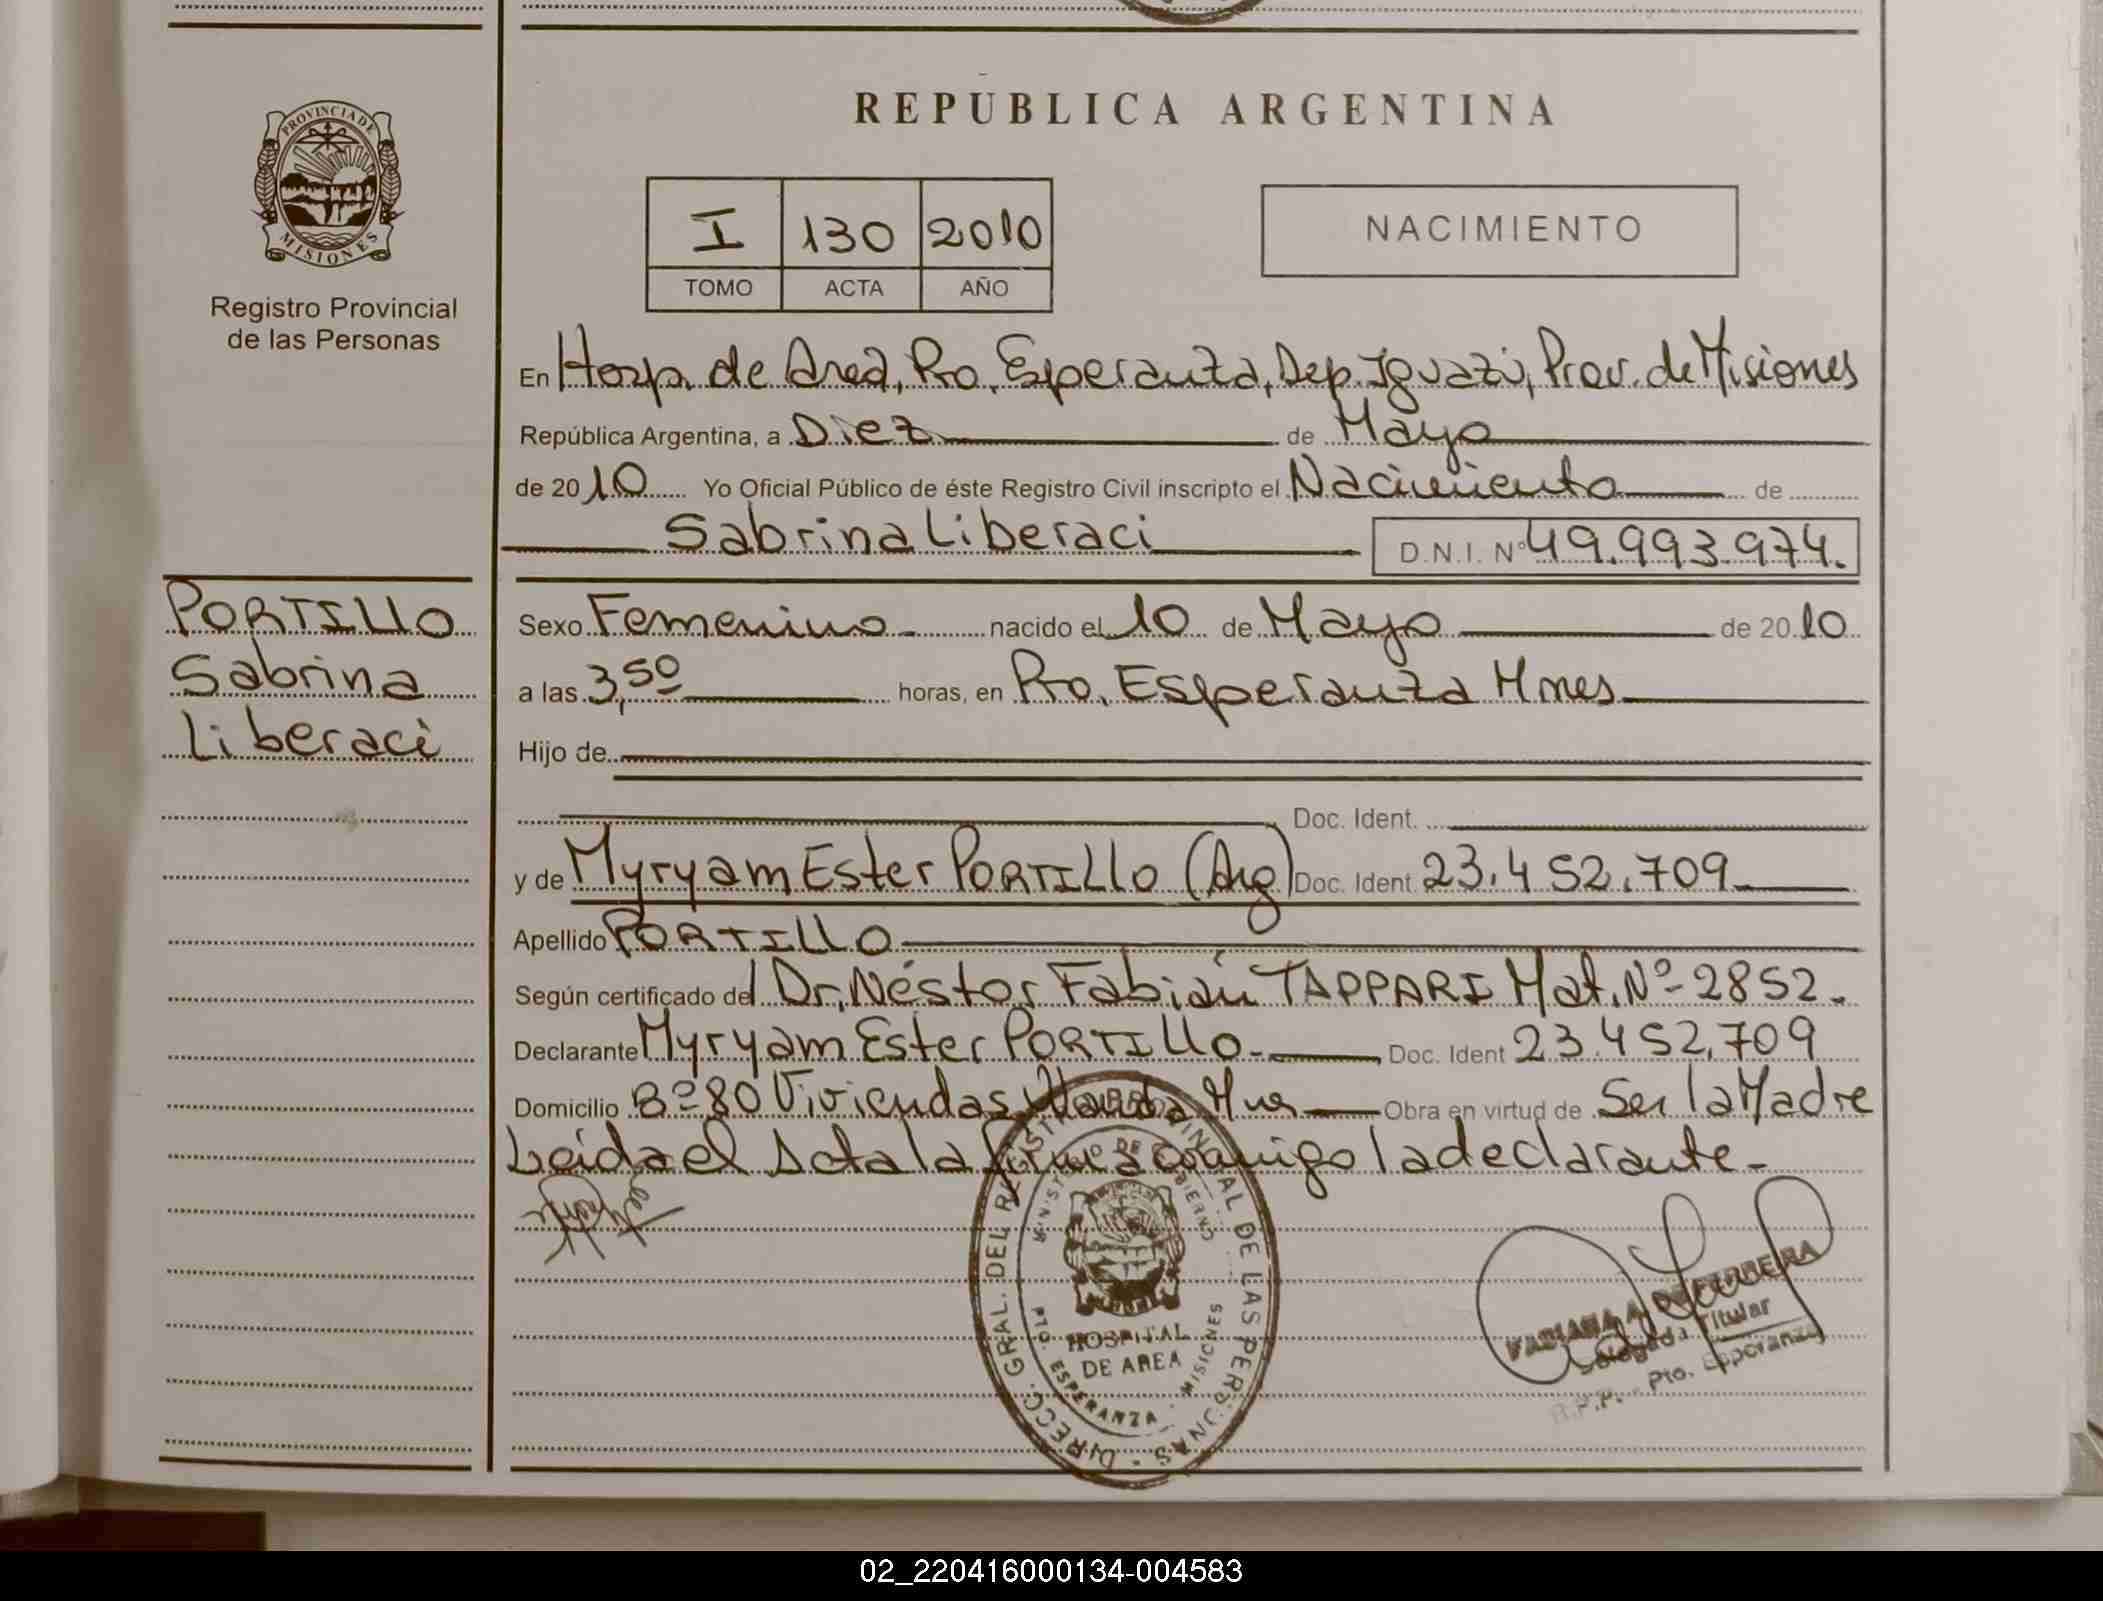 REPUBLICA ARGENTINA
PROVINCIA DE
MISIONES
Registro Provincial
de las Personas
I 130 2010
TOMO ACTA AÑO
NACIMIENTO
En Hosp. de Area, Pto. Esperanza, Dep. Iguazú, Prov. de Misiones
República Argentina, a Diez de Mayo
de 2010 Yo Oficial Público de éste Registro Civil inscripto el Nacimiento de
Sabrina Liberaci D.N.I. Nº 49.993.974.
PORTILLO
Sabrina
Liberaci
Sexo Femenino nacido el 10 de Mayo de 2010
a las 3,50 horas, en Pto. Esperanza Mnes
Hijo de
Doc. Ident.
y de Myryam Ester PORTILLO (Arg) Doc. Ident. 23.452.709
Apellido PORTILLO
Según certificado del Dr. Néstor Fabián TAPPARI Mat. Nº 2852.
Declarante Myryam Ester PORTILLO Doc. Ident 23.452.709
Domicilio Bº 80 Viviendas Wanda Mnes Obra en virtud de Ser la Madre
Leida el Acta la firma conmigo la declarante.
DIRECC. GRAL. DEL REGISTRO PROVINCIAL DE LAS PERSONAS
MINISTERIO DE GOBIERNO
HOSPITAL
DE AREA
PTO. ESPERANZA - MISIONES
FABIANA A. DE FERREIRA
Delegada Titular
R.P.P. - Pto. Esperanza
02_220416000134-004583